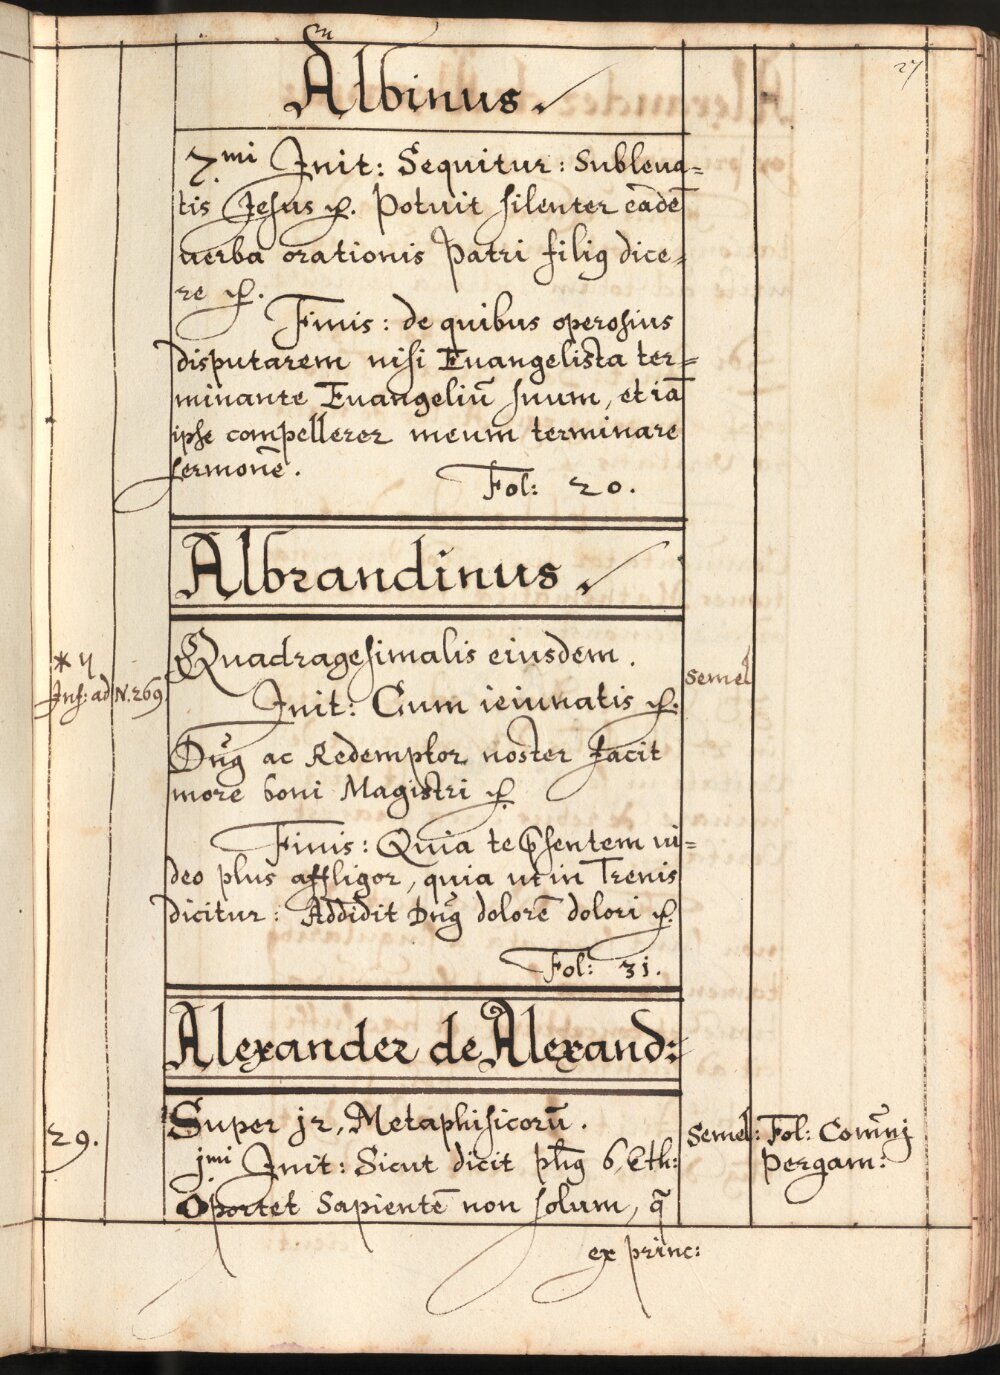 27
Albinus.
7.mi Init: Sequitur: Subleua=
tis Jesus &. Potuit silenter eadē
uerba orationis Patri filiꝰ dice=
re &.
Finis: de quibus operosius
disputarem nisi Euangelista ter=
minante Euangeliū suum, et iā
ipse compellerer meum terminare
sermonē.
Fol: 20.
Albrandinus.
Quadragesimalis eiusdem.
Semel
Ins: ad N. 269.
Init: Cum ieiunatis &.
Dn̄ꝰ ac Redemptor noster facit
more boni Magistri &.
Finis: Quia te p̄sentem ui=
deo plus affligor, quia ut in Trenis
dicitur: Addidit Dn̄ꝰ dolorē dolori &.
Fol: 31.
Alexander de Alexand:
29.
Super jz, Metaphisicorū.
Semel: Fol: Com̄nj
Pergam:
jmi Init: Sicut dicit ph̄ꝰ 6, Eth:
Oportet Sapientē non solum, q̄
ex princ: